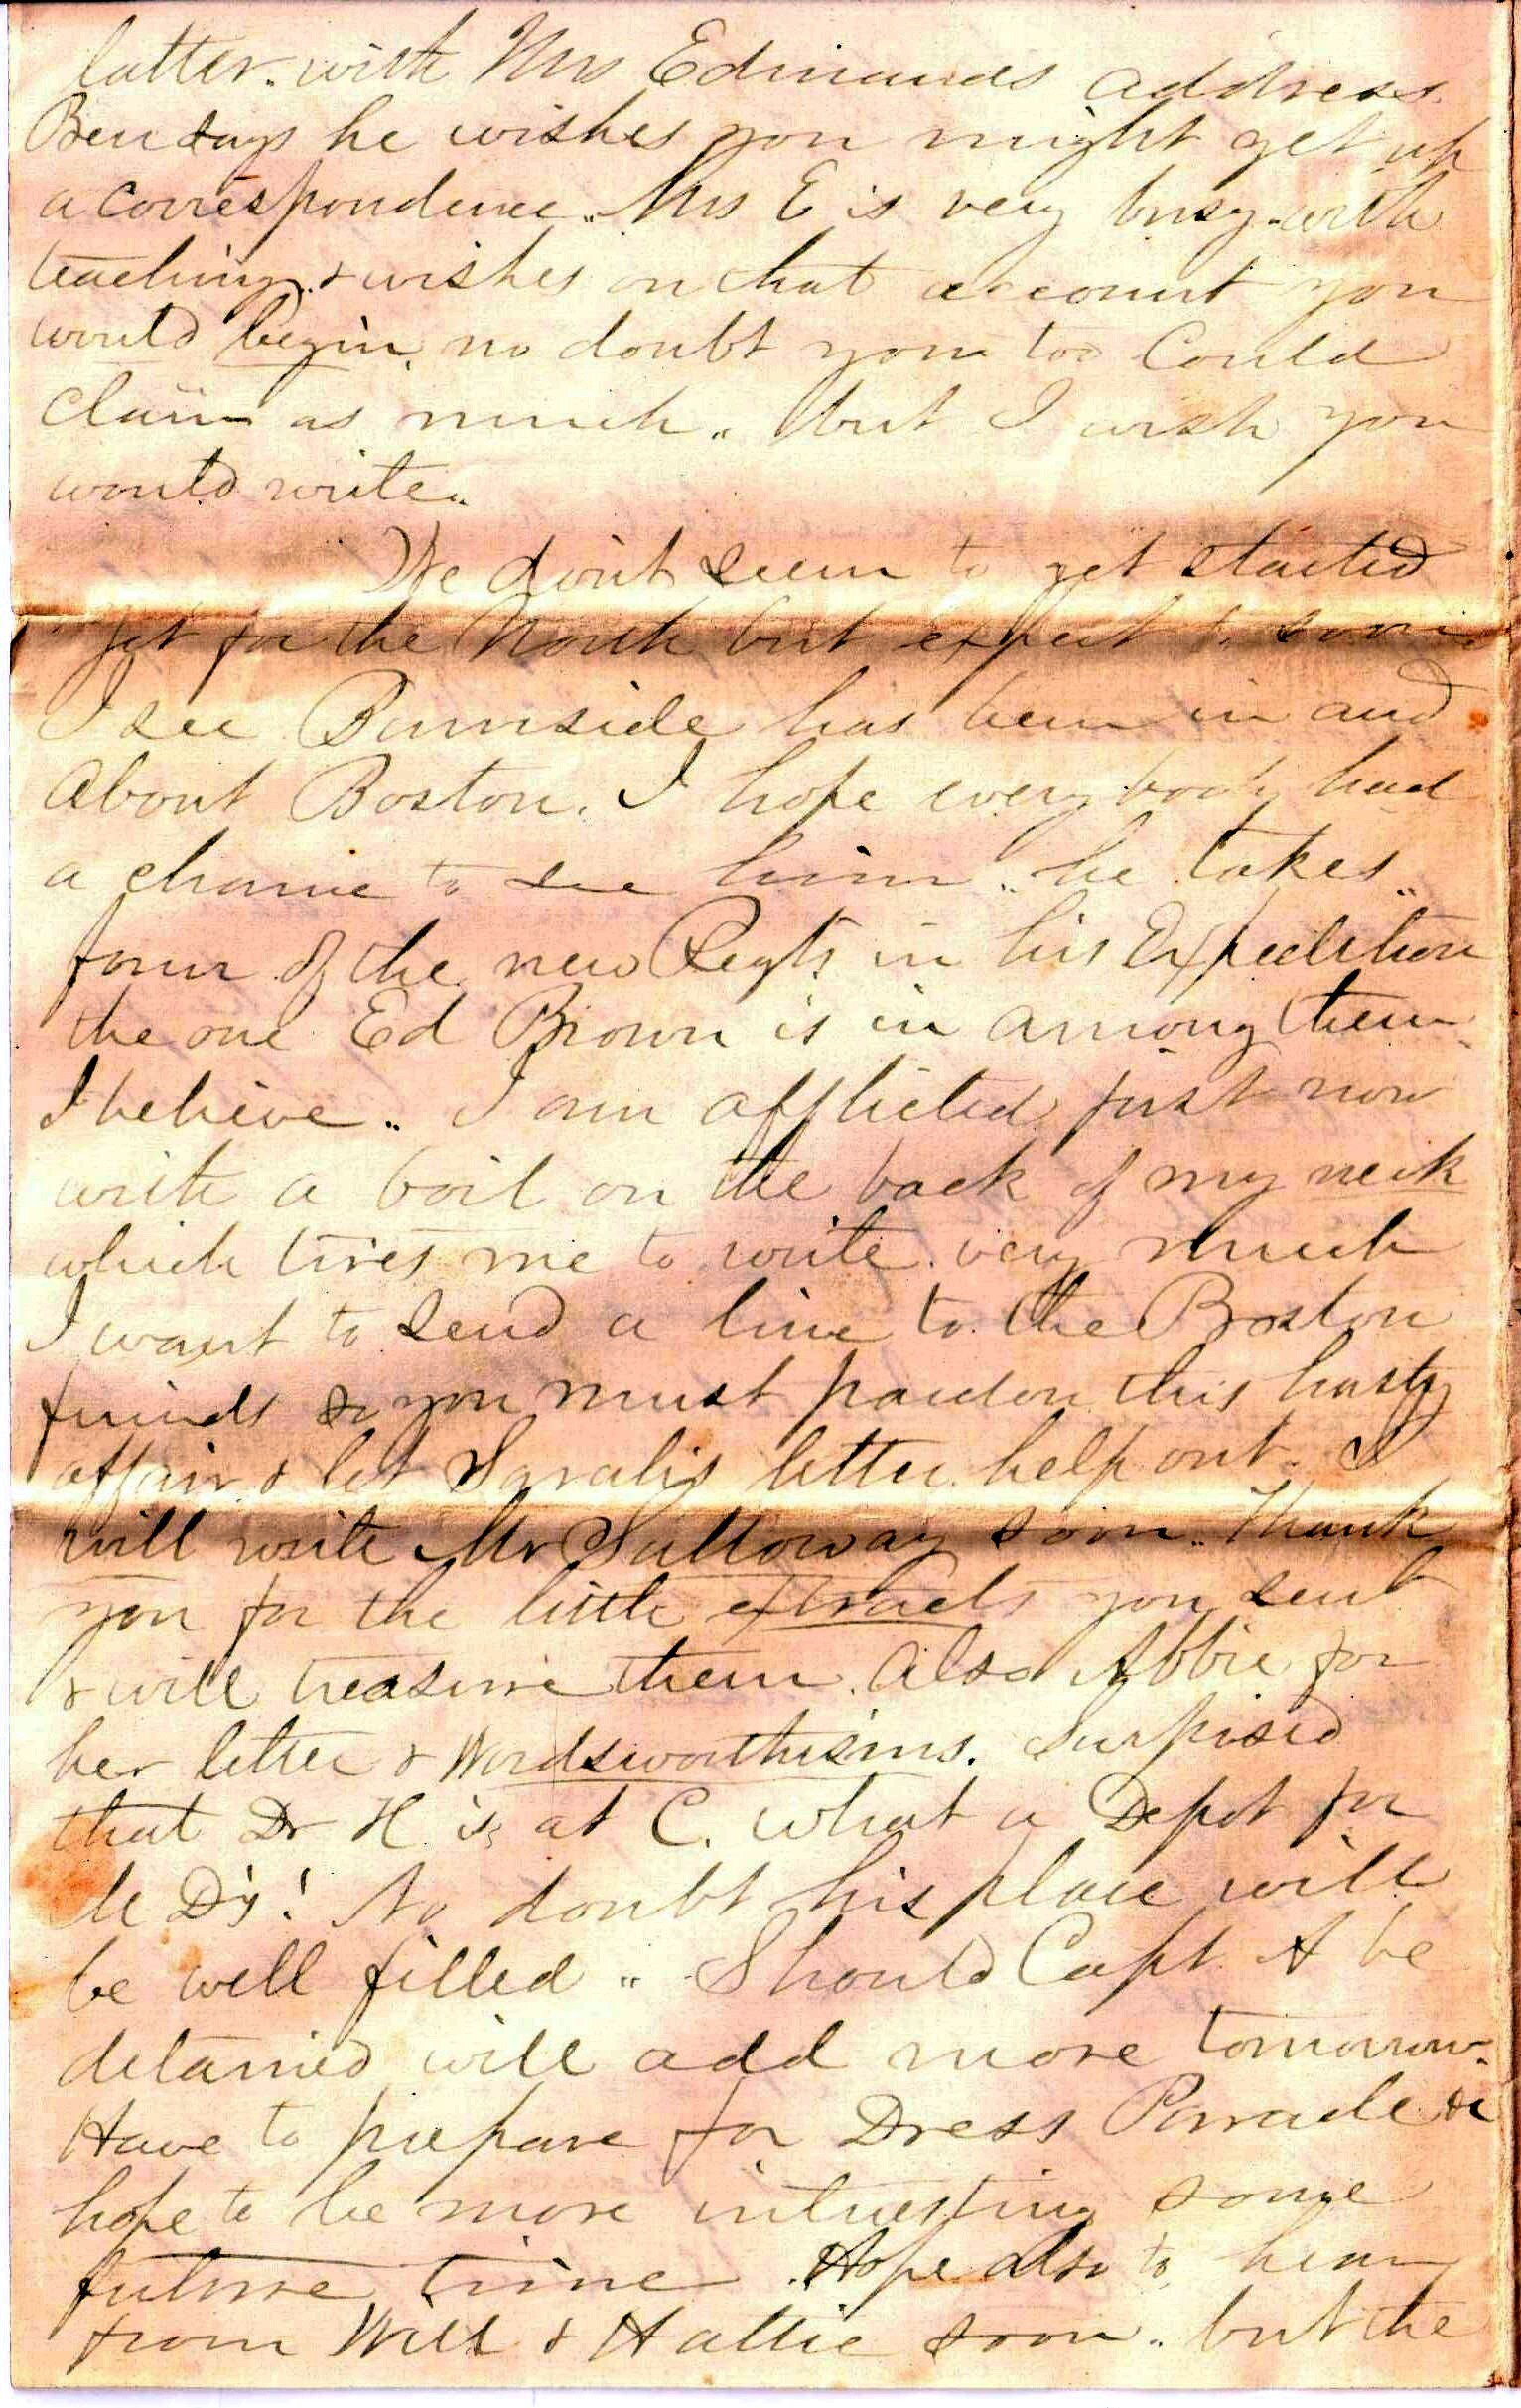 latter. with Mrs Edmands address.
Ben says he wishes you might get up
a correspondence.. Mrs E is very busy with
teaching. & wishes on that account you
would begin, no doubt you too Could
Claim as much.. but I wish you
would write..
We don't seem to get started
yet for the North but expect to soon.
I see Burnside has been in and
about Boston. I hope every body had
a chance to see him.. he takes..
four of the new Regts. in his Expedition
the one Ed Brown is in among them
I believe.. I am afflicted just now
with a boil on the back of my neck
which tires me to write very much
I want to send a line to the Boston
friends so you must pardon this hasty
affair & let Sarah's letter help out. I
will write Mr Sulloway soon.. Thank
you for the little extracts you sent
& will treasure them. Also Abbie for
her letter & Wordsworthisms. Surprised
that Dr H. is at C. What a Depot for
M D's! No doubt his place will
be well filled.. Should Capt. A be
detained will add more tomorrow.
Have to prepare for Dress Parade &c
hope to be more interesting some
future time. Hope also to hear
from Will & Hattie soon.. but the